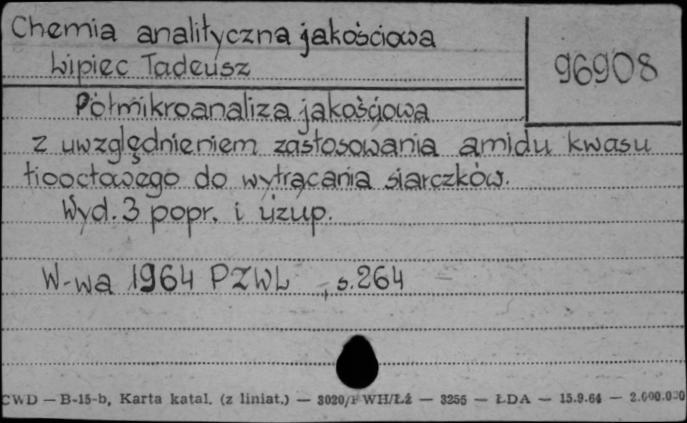 Chemia analityczna jakościowa
Lipiec Tadeusz
96908
Półmikroanaliza jakościowa
z uwzględnieniem zastosowania amidu kwasu
tiooctowego do wytrącania siarczków.
Wyd. 3 popr. i uzup.
W-wa 1964 PZWL , s. 264
CWD — B-15-b, Karta katal. (z liniat.) — 3020/F WH/Łź — 3256 — ŁDA — 15.9.64 — 2.000.000